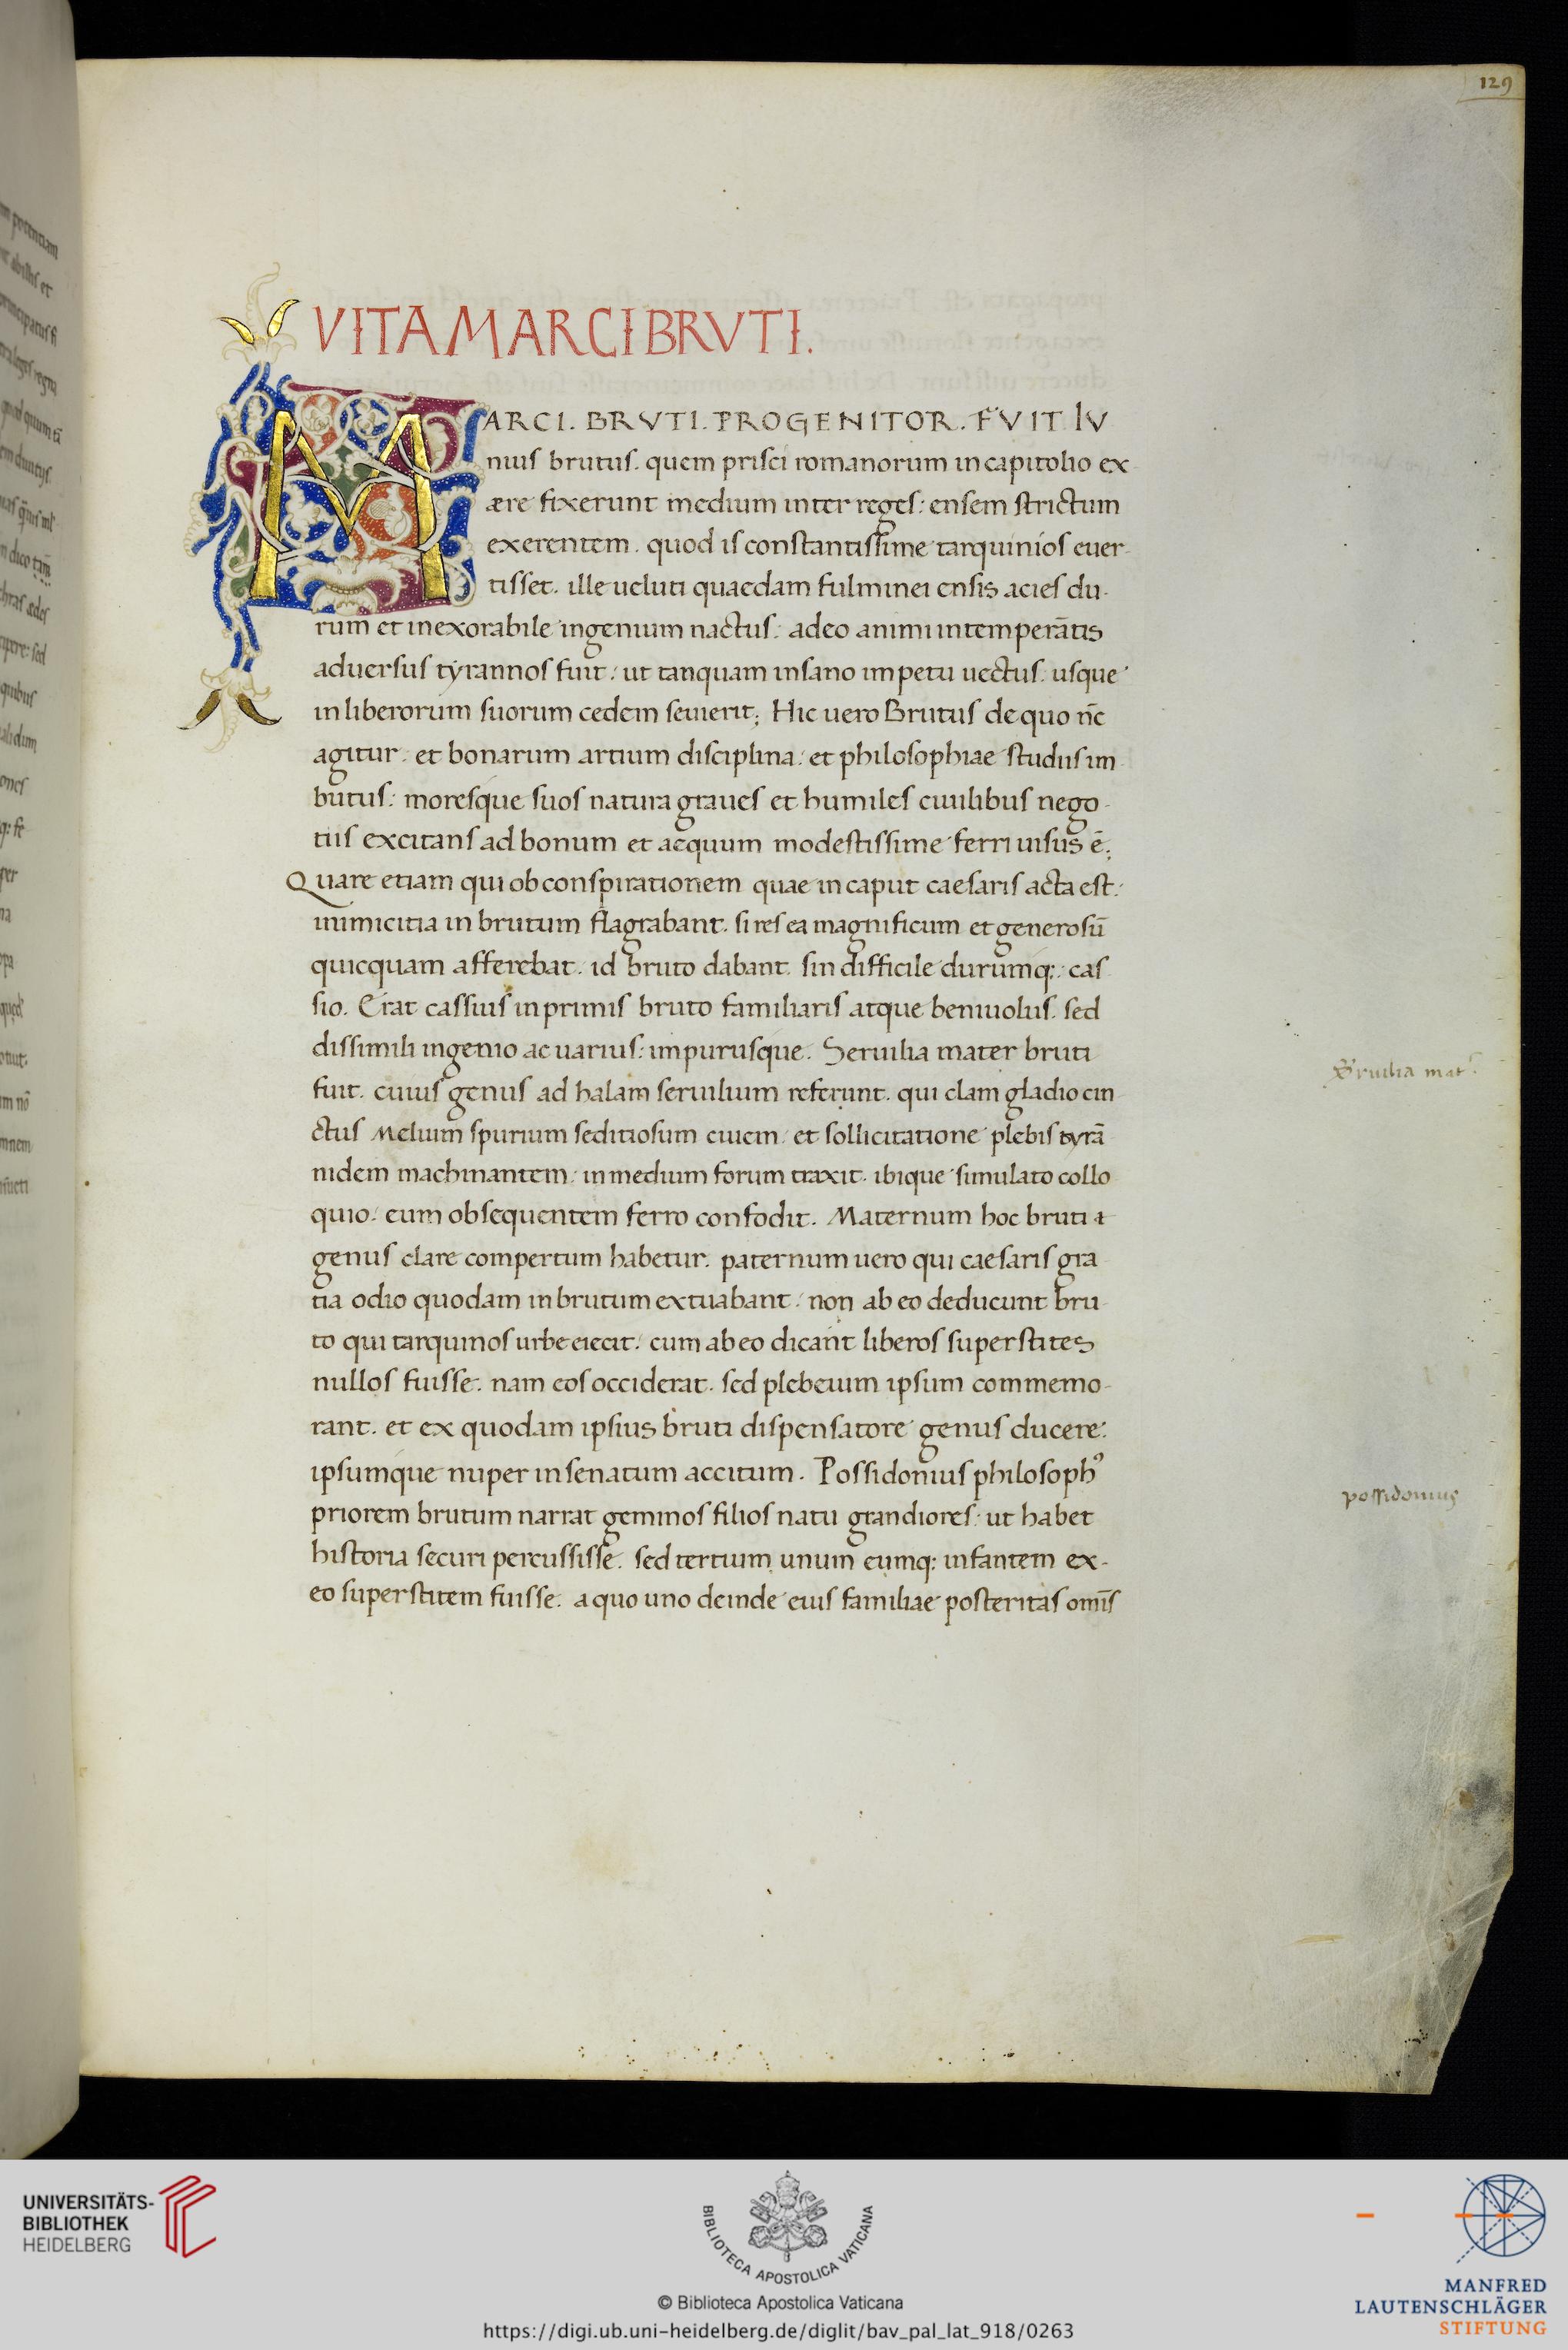 129
VITA MARCI BRVTI.
MARCI. BRVTI. PROGENITOR. FVIT IV
nius brutus. quem prisci romanorum in capitolio ex
ære fixerunt medium inter reges: ensem strictum
exerentem. quod is constantissime tarquinios euer-
tisset. ille ueluti quaedam fulminei ensis acies du-
rum et inexorabile ingenium nactus: adeo animi intemperātis
aduersus tyrannos fuit: ut tanquam insano impetu uectus: usque
in liberorum suorum cedem seuierit; Hic uero Brutus de quo nc̄
agitur: et bonarum artium disciplina: et philosophiae studiis im-
butus: moresque suos natura graues et humiles ciuilibus nego-
tiis excitans ad bonum et aequum modestissime ferri uisus ē;
Quare etiam qui ob conspirationem quae in caput caesaris acta est:
inimicitia in brutum flagrabant. si res ea magnificum et generosū
quicquam afferebat. id bruto dabant. sin difficile durumq;: cas
sio. Erat cassius in primis bruto familiaris atque beniuolus. sed
dissimili ingenio ac uarius: impurusque. Seruilia mater bruti
fuit. cuius genus ad halam seruilium referunt. qui clam gladio cin
ctus Melium spurium seditiosum ciuem: et sollicitatione plebis tyrā
nidem machinantem: in medium forum traxit. ibique simulato collo
quio: eum obsequentem ferro confodit. Maternum hoc bruti
genus clare compertum habetur. paternum uero qui caesaris gra
tia odio quodam in brutum extuabant: non ab eo deducunt bru-
to qui tarquinos urbe eiecit: cum ab eo dicant liberos superstites
nullos fuisse. nam eos occiderat. sed plebeium ipsum commemo-
rant. et ex quodam ipsius bruti dispensatore genus ducere:
ipsumque nuper in senatum accitum. Possidonius philosophꝰ
priorem brutum narrat geminos filios natu grandiores: ut habet
historia securi percussisse. sed tertium unum eumq; infantem ex-
eo superstitem fuisse. a quo uno deinde eius familiae posteritas omīs
Seruilia mat
possidonius
UNIVERSITÄTS-
BIBLIOTHEK
HEIDELBERG
BIBLIOTECA APOSTOLICA VATICANA
© Biblioteca Apostolica Vaticana
https://digi.ub.uni-heidelberg.de/diglit/bav_pal_lat_918/0263
MANFRED
LAUTENSCHLÄGER
STIFTUNG